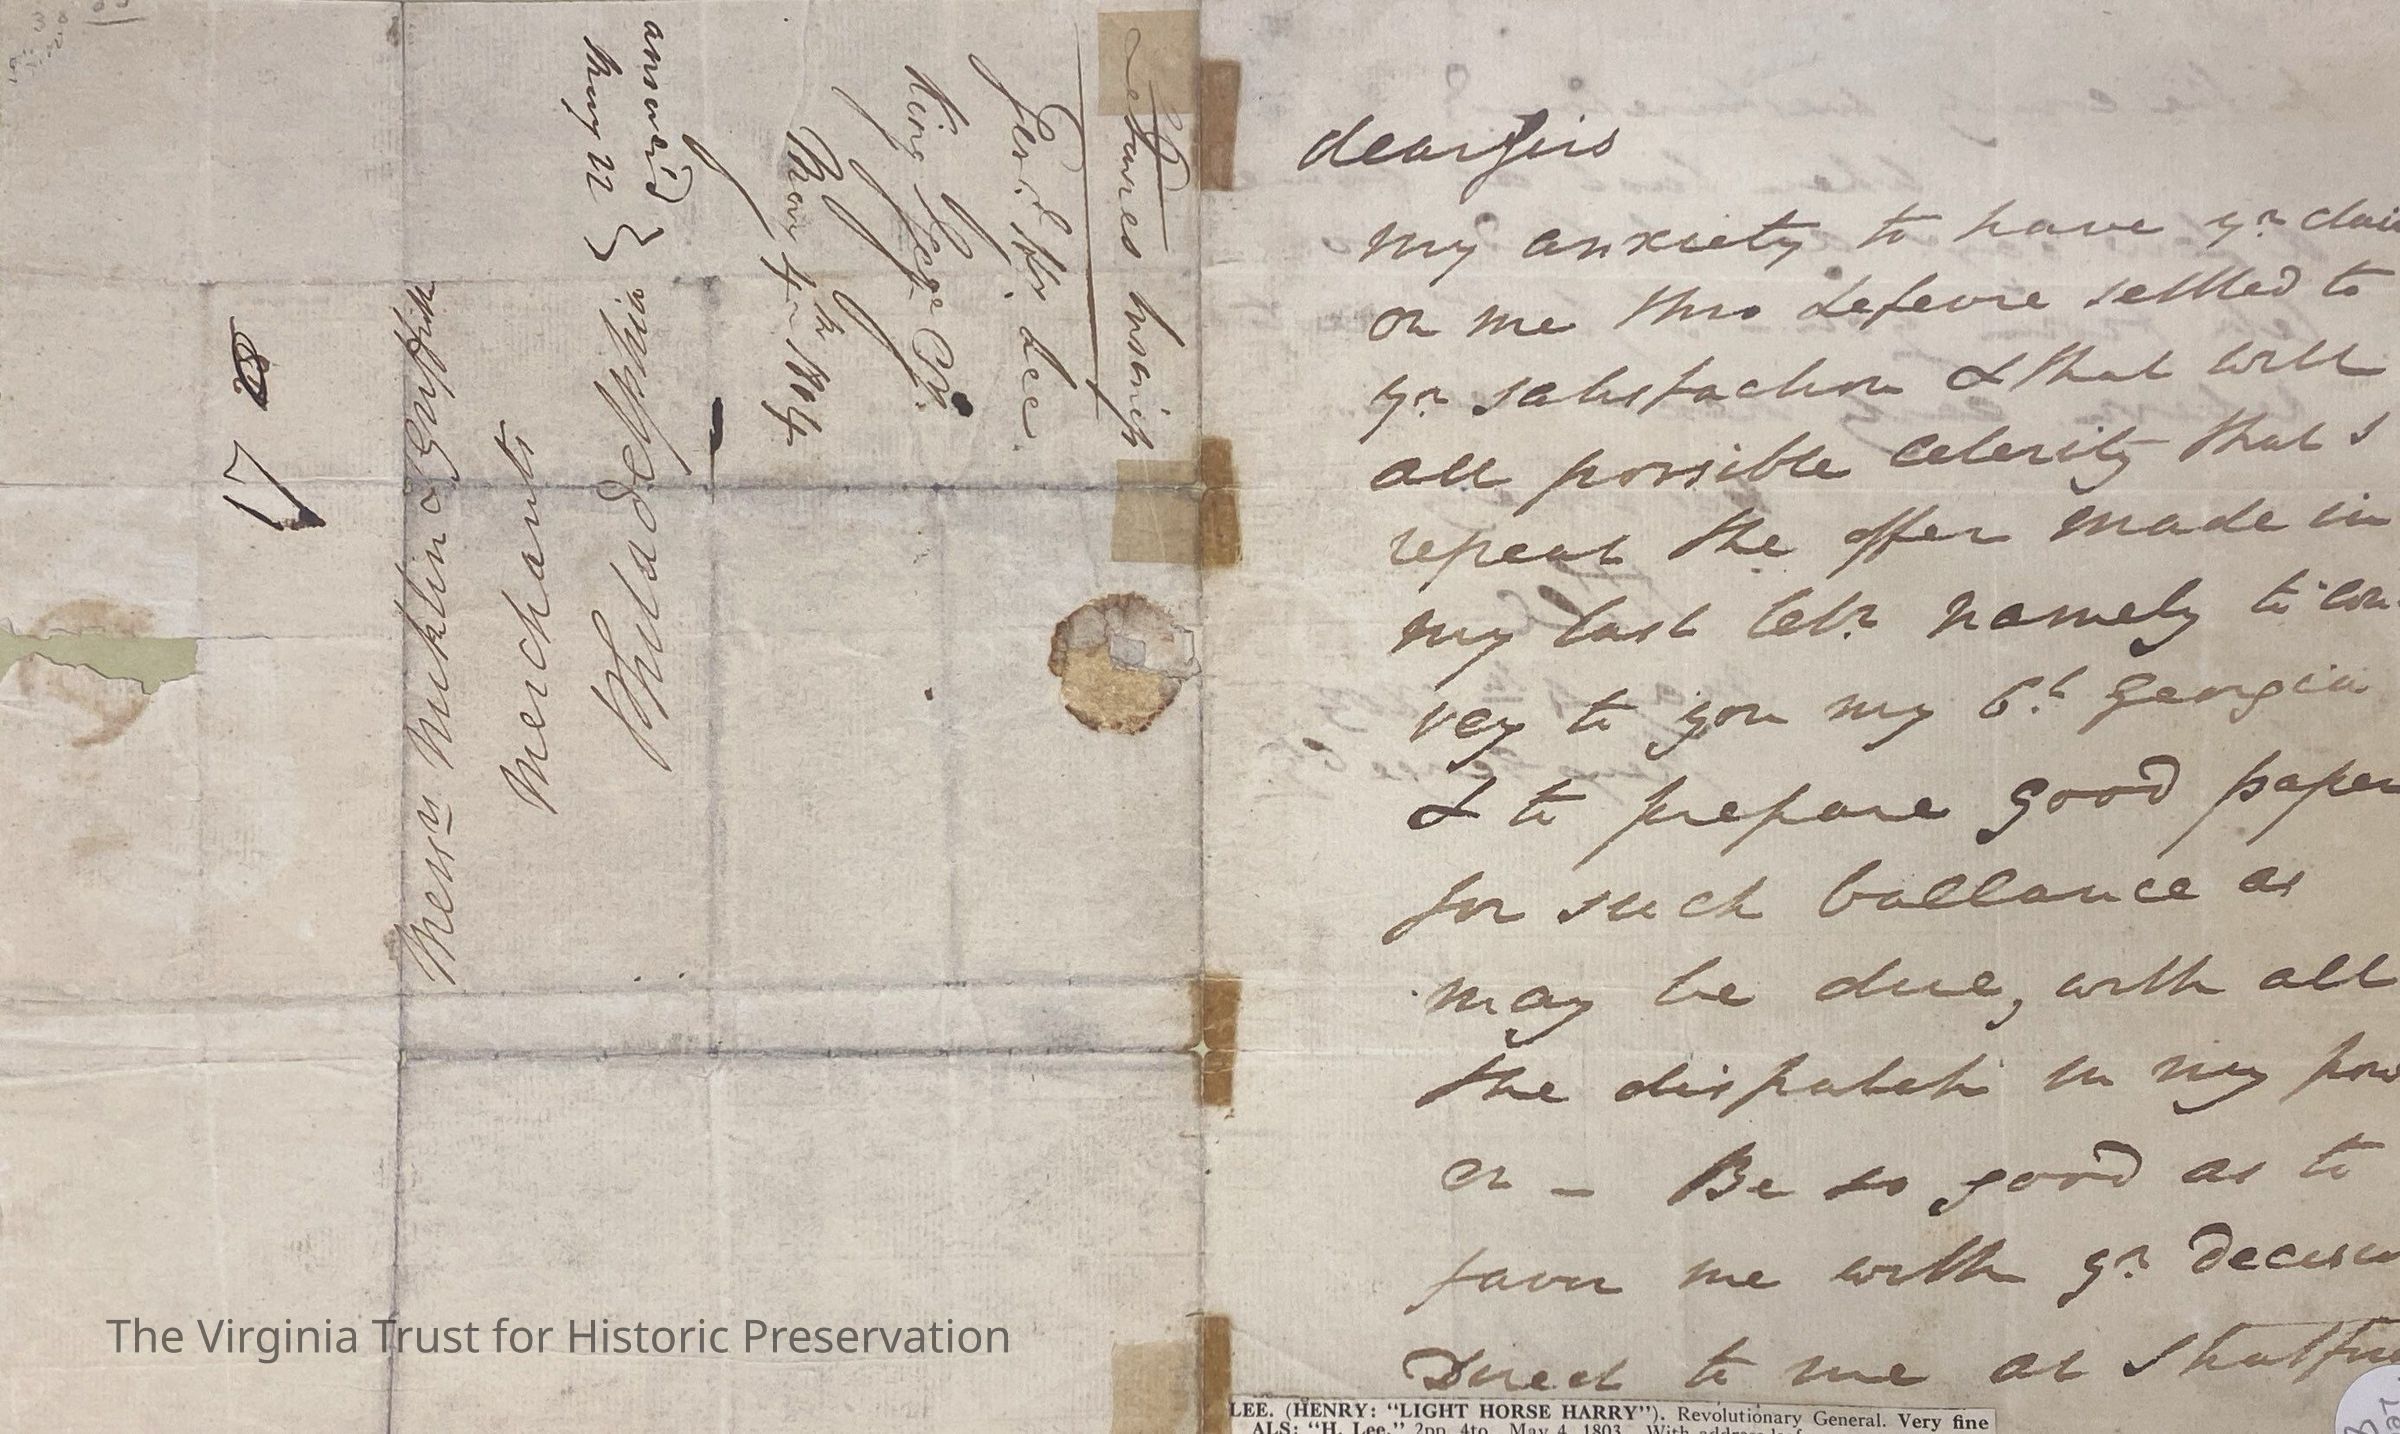 17
Messrs Mieklin & Griffith
Merchants
Philadelphia
answerd
May 22
Genl Hy. Lee
King George Ct.
May 4th 1804
dear sirs
my anxiety to have yr clai
on me thro Lefevre settled to
yr satisfaction & that with
all possible celerity that I
repeat the offer made in
my last letr. namely to con-
vey to you my 6t. Georgia
& to prepare good paper
for such ballance as
may be due, with all
the dispatch in my pow
er - Be so good as to
favor me with yr decisio
Direct to me at Stratfor
The Virginia Trust for Historic Preservation
LEE. (HENRY: “LIGHT HORSE HARRY”). Revolutionary General. Very fine
ALS: “H. Lee,” 2pp. 4to, May 4, 1803. With address leaf